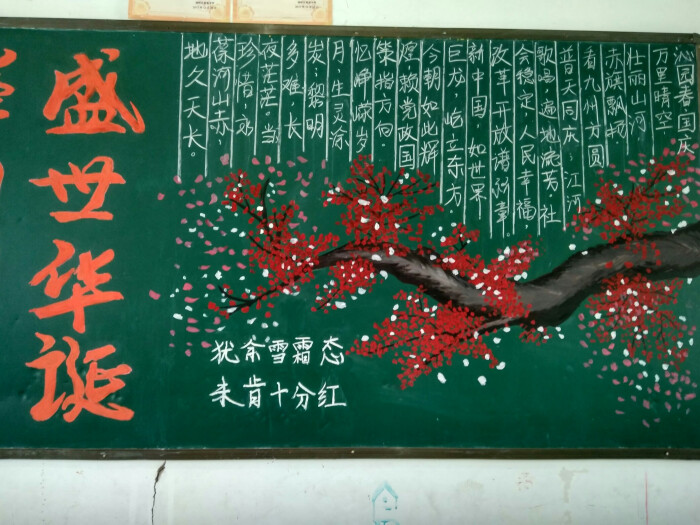 沁园春国庆
万里晴空
壮丽山河
赤旗飘扬
看九州方圆
普天同庆；江河
歌唱，遍地流芳。社
会稳定，人民幸福，
改革开放谱新章。
新中国，如世界
巨龙，屹立东方。
今朝如此辉
煌赖党政国
策指方向。
忆峥嵘岁
月；生灵涂
炭；黎明
多难，长
夜茫茫。当
珍惜；
葆河山赤，
地久天长。
犹余雪霜态
未肯十分红
盛世华诞